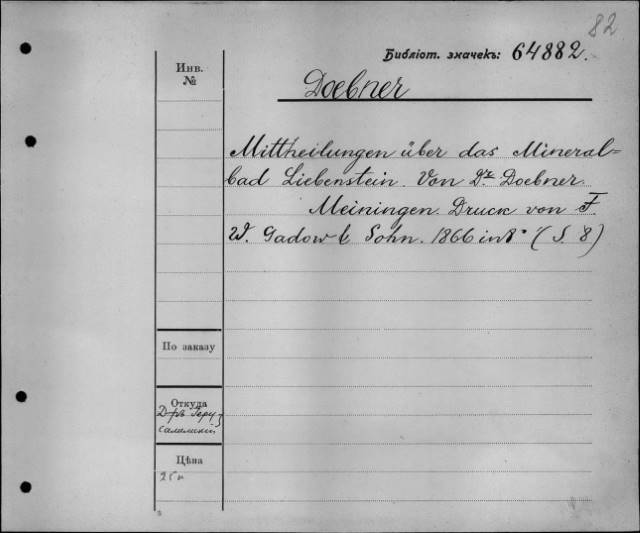 82
Библіот. значекъ: 64882.
Инв.
№
Doebner
Mittheilungen über das Mineral=
bad Liebenstein. Von Dr. Doebner.
Meiningen. Druck von F.
W. Gadow & Sohn. 1866 in 8° (S. 8)
По заказу
Откуда
Д-ръ Iеру
салимскій
Цѣна
25 к